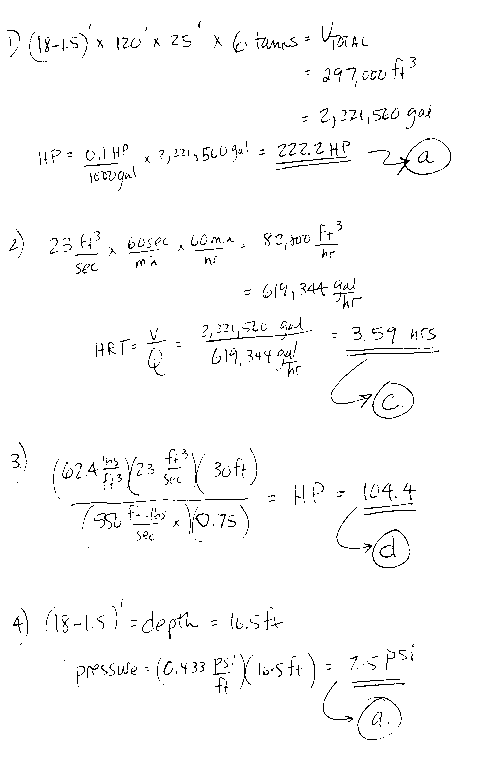 1) (18-1.5)' x 120' x 25' x 6 tanks = V TOTAL
= 297,000 ft³
= 2,221,560 gal
HP = 0.1 HP / 1000 gal x 2,221,560 gal = 222.2 HP → a
2) 23 ft³/sec x 60 sec/min x 60 min/hr = 82,800 ft³/hr
= 619,344 gal/hr
HRT = V/Q = 2,221,560 gal / 619,344 gal/hr = 3.59 hrs
→ c.
3.) (62.4 lbs/ft³)(23 ft³/sec)(30 ft) / (550 ft·lbs/sec x )(0.75) = HP = 104.4
→ d
4) (18-1.5)' = depth = 16.5 ft
pressure = (0.433 psi/ft)(16.5 ft) = 7.5 psi
→ a.